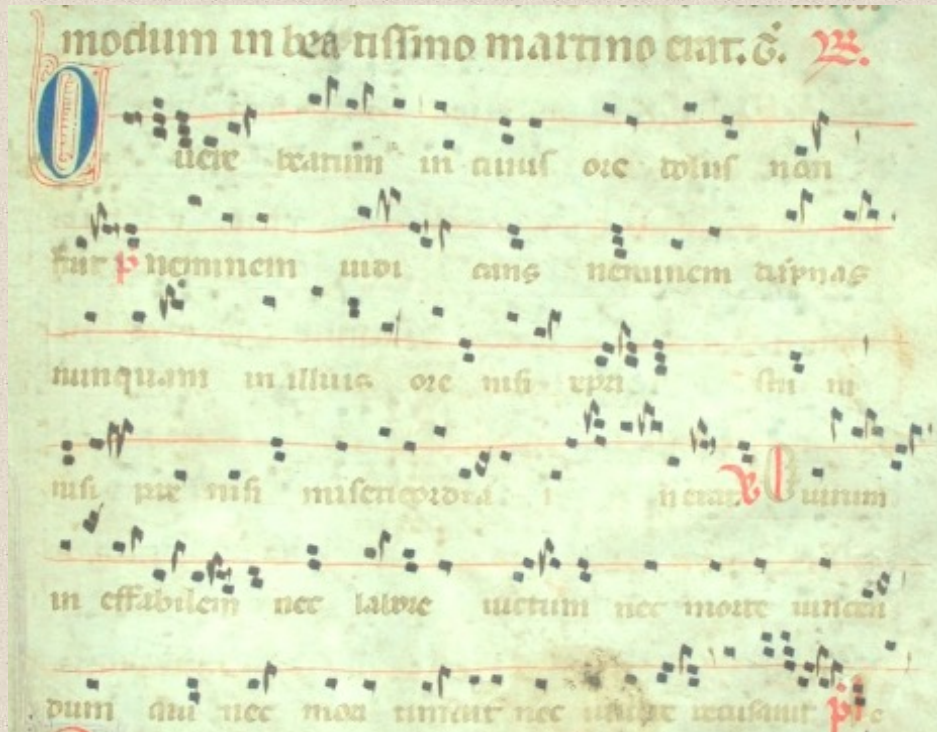 modum in bea tissimo martino erat.
O uere beatum in cuius ore dolus non
fuit p neminem iudi cans neminem dãpnas
nunquam in illius ore nisi xpri
nisi pie nisi misericordia
uirum
in effabilem nec labore uictum nec morte uincen
dum qui nec mori timuit nec recusauit